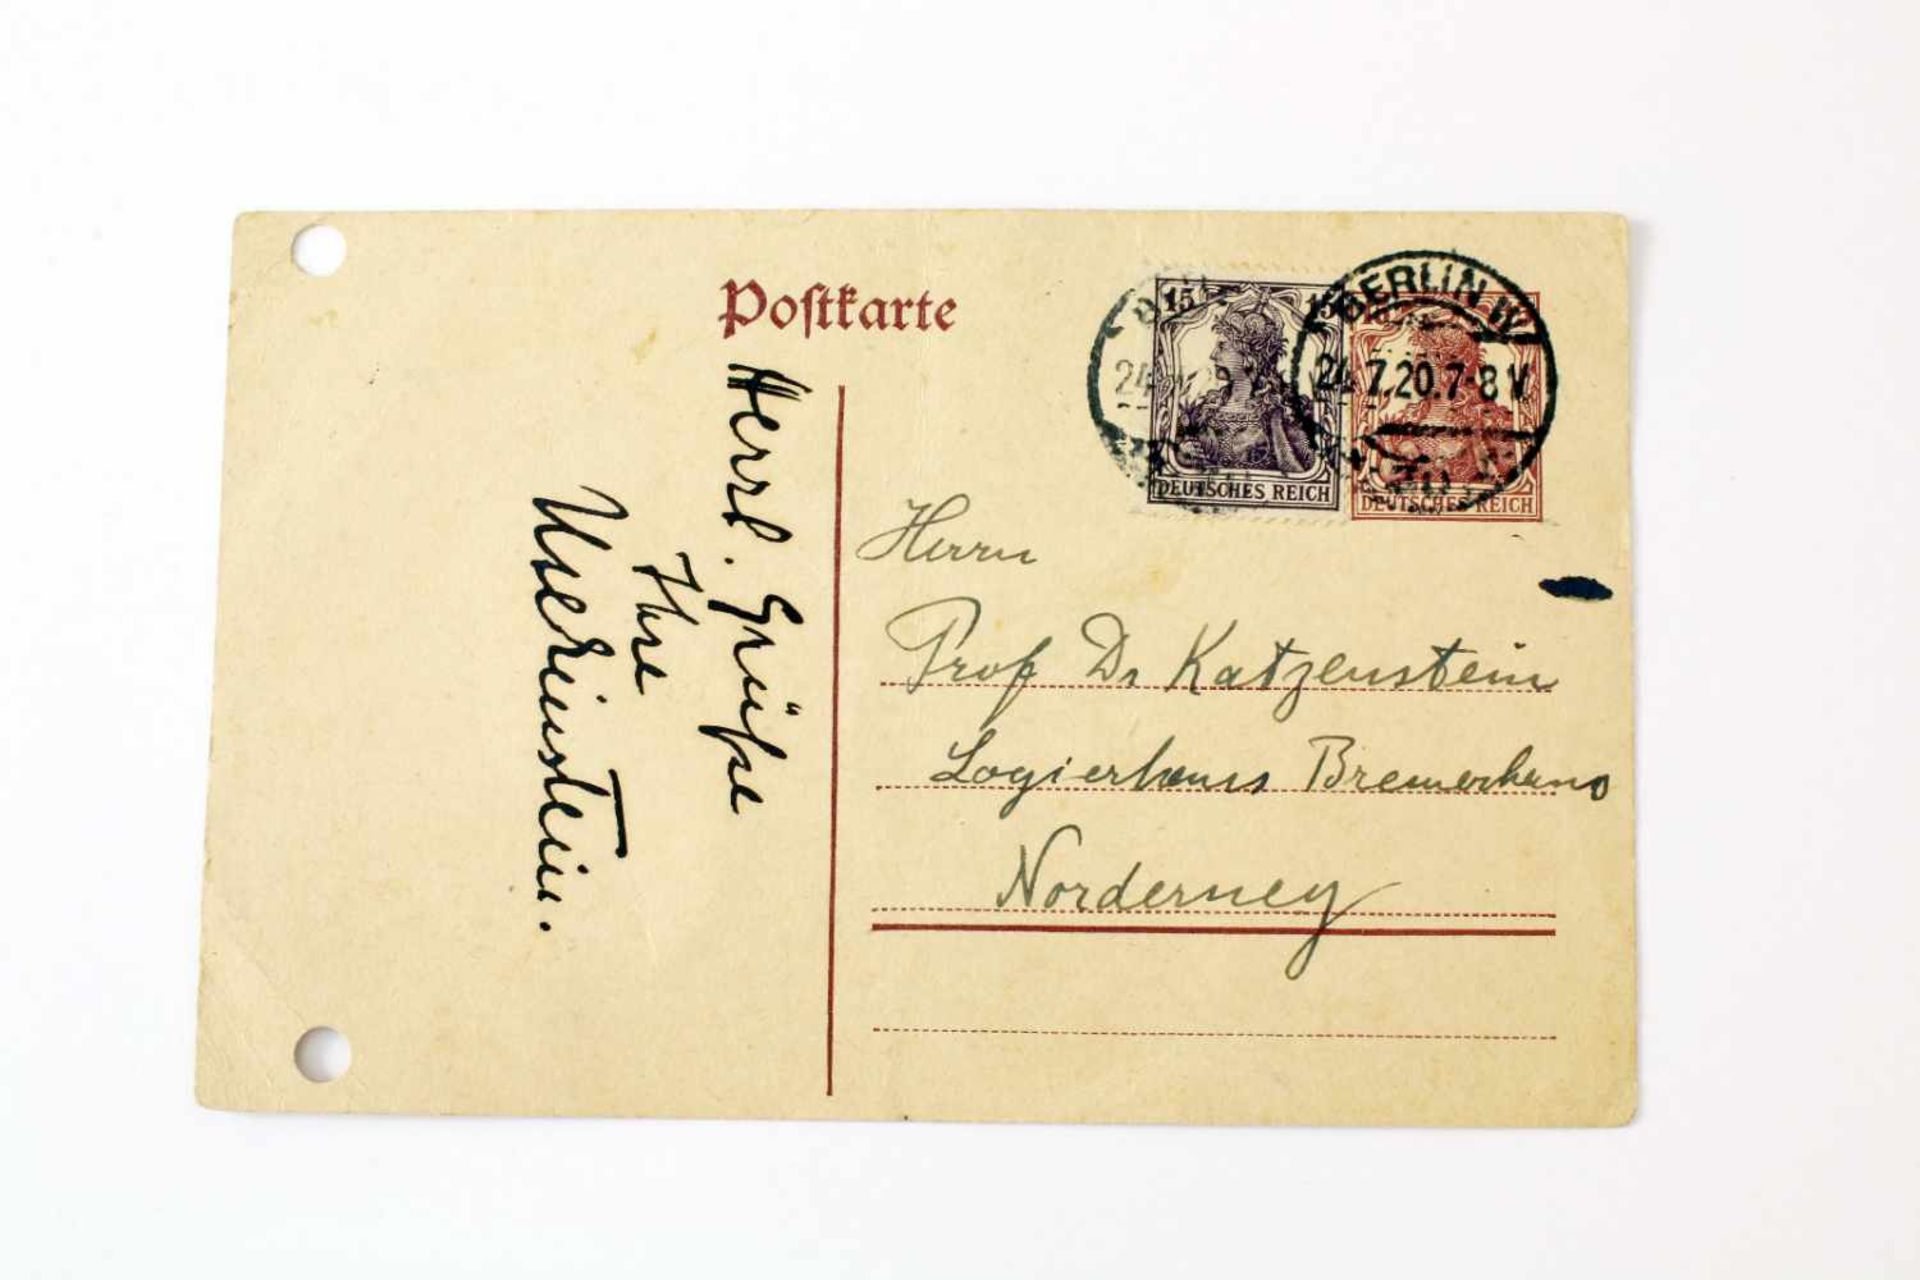 Postkarte
15 15
DEUTSCHES REICH
DEUTSCHES REICH
BERLIN W
24.7.20.7-8V
Herrn
Prof Dr Katzenstein
Logierhaus Bremerhaus
Norderney
Herzl. Grüße
Ihre